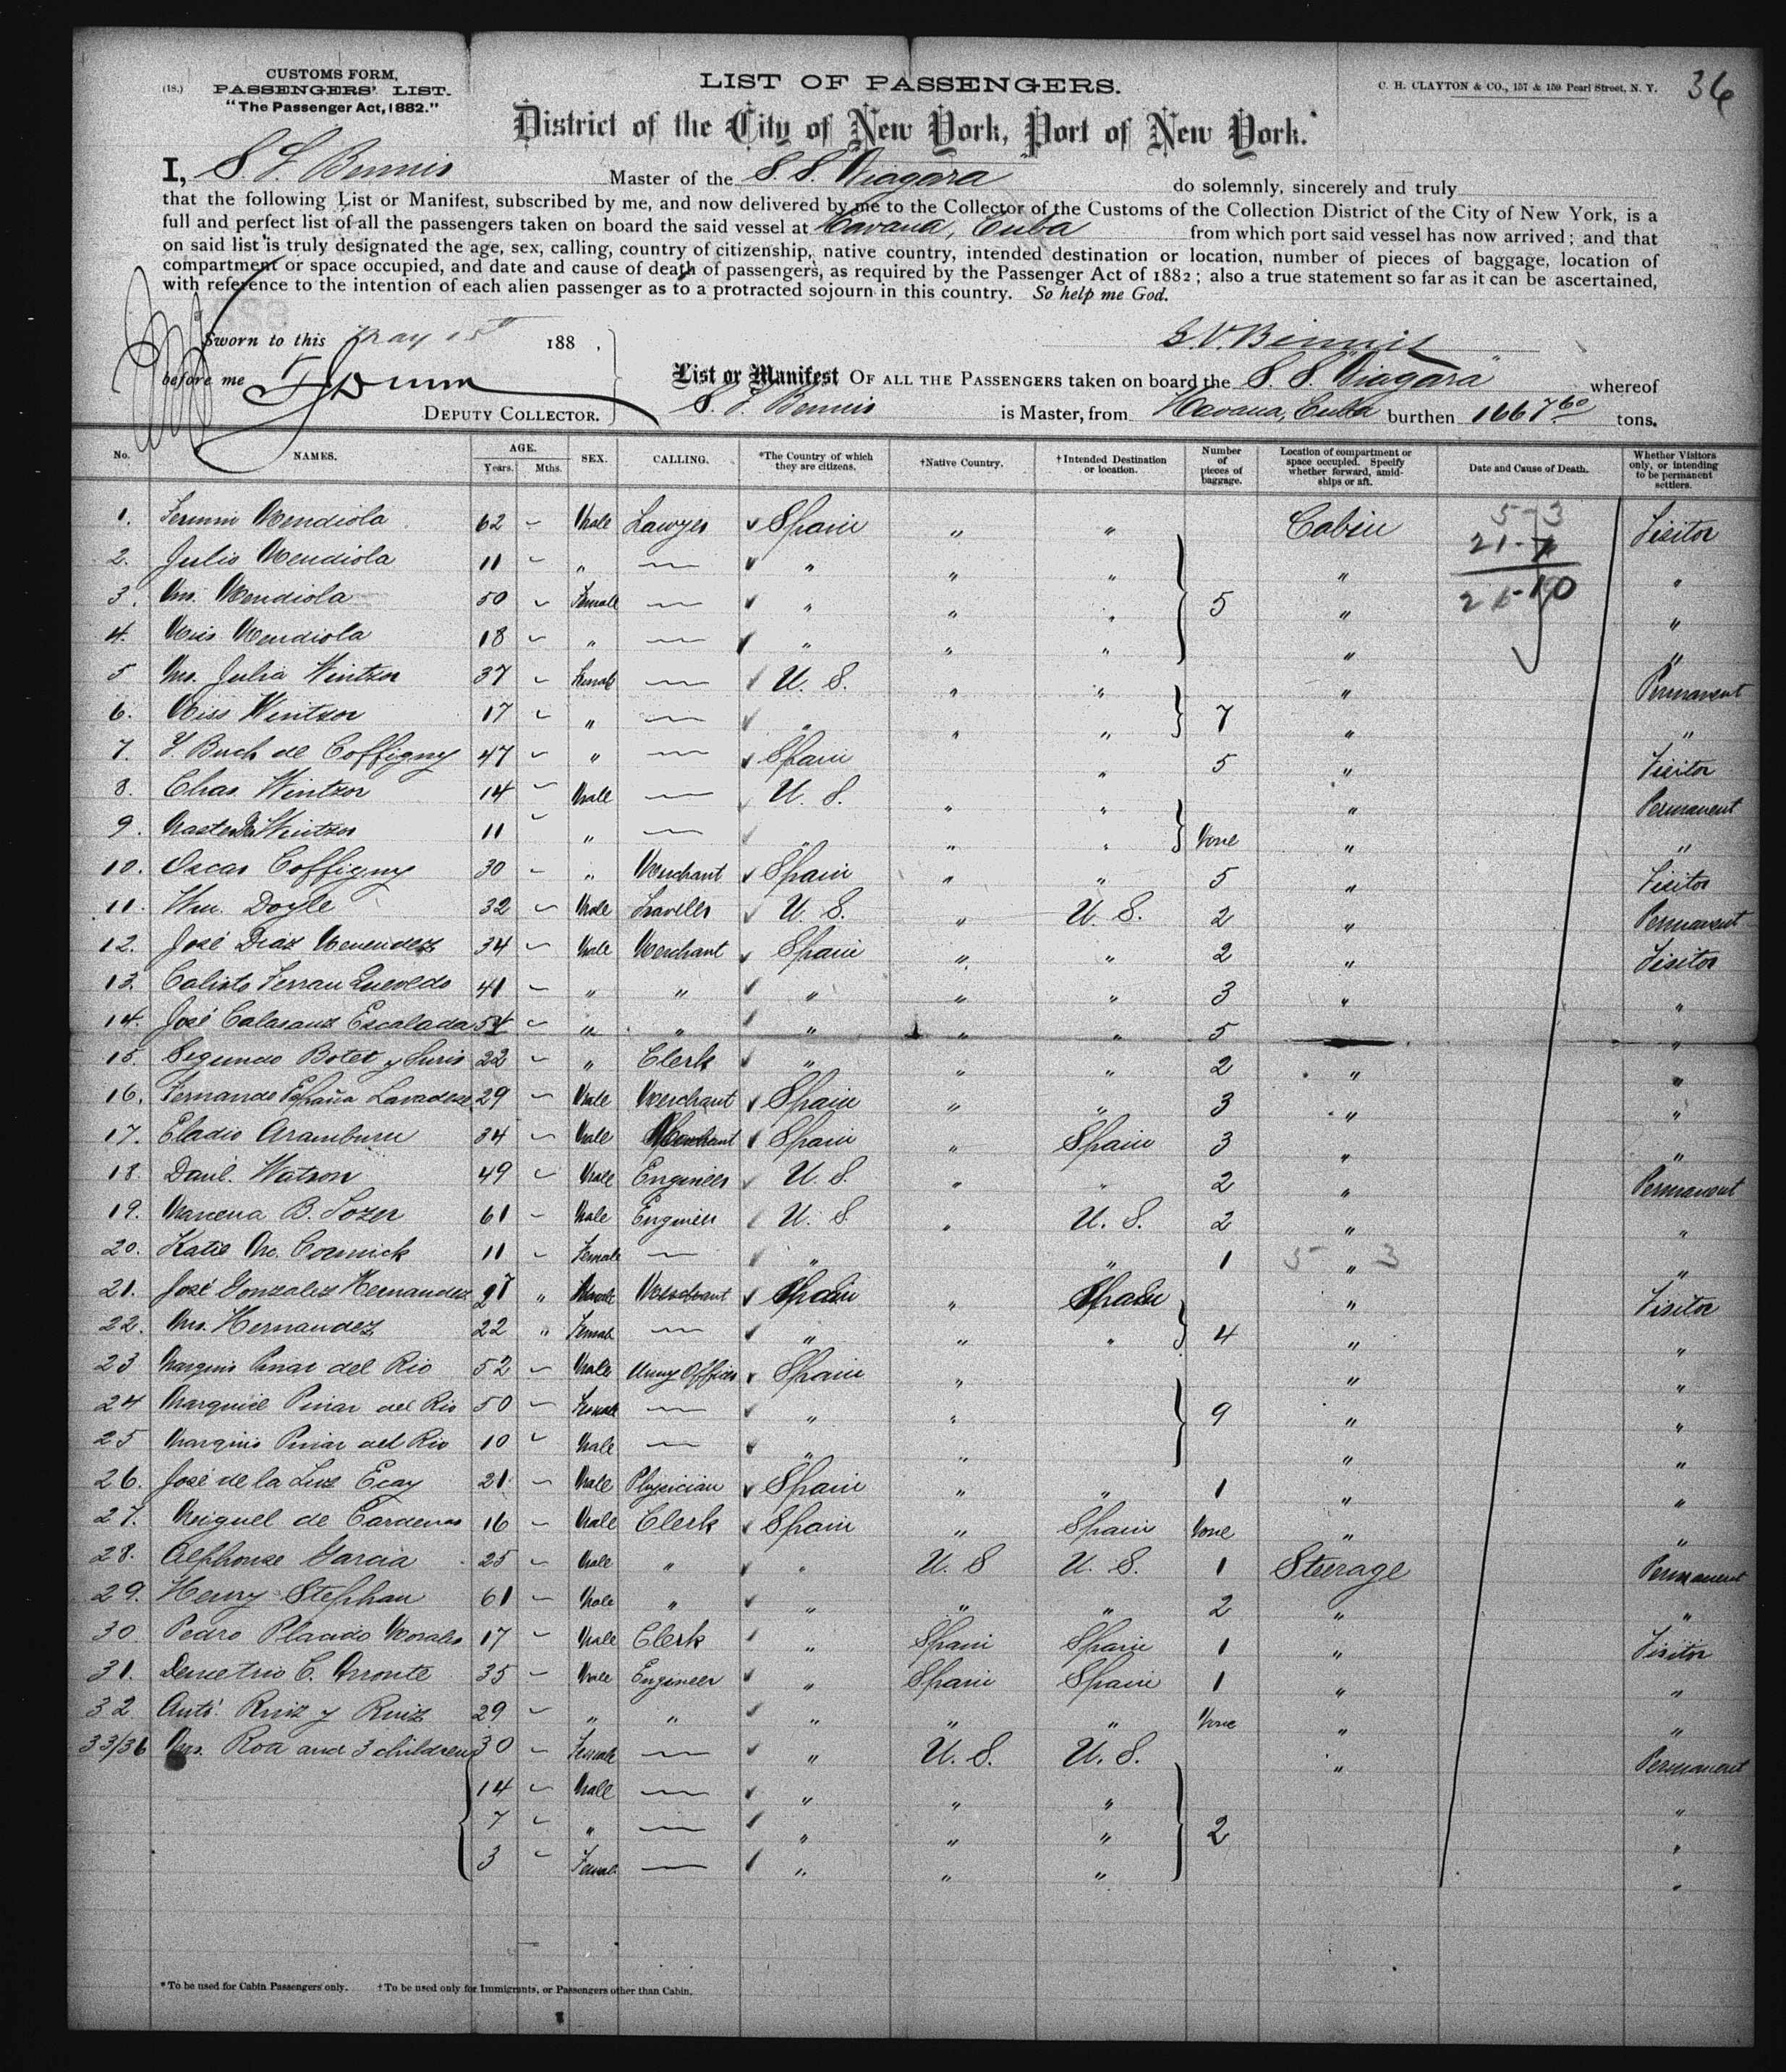 (18.)
CUSTOMS FORM,
PASSENGERS' LIST.
"The Passenger Act, 1882."
LIST OF PASSENGERS.
C. H. CLAYTON & CO., 157 & 159 Pearl Street, N. Y.
36
District of the City of New York, Port of New York.
I, Bennis Master of the S. S. Niagara do solemnly, sincerely and truly
that the following List or Manifest, subscribed by me, and now delivered by me to the Collector of the Customs of the Collection District of the City of New York, is a
full and perfect list of all the passengers taken on board the said vessel at Havana, Cuba from which port said vessel has now arrived; and that
on said list is truly designated the age, sex, calling, country of citizenship, native country, intended destination or location, number of pieces of baggage, location of
compartment or space occupied, and date and cause of death of passengers, as required by the Passenger Act of 1882; also a true statement so far as it can be ascertained,
with reference to the intention of each alien passenger as to a protracted sojourn in this country. So help me God.
Sworn to this May 15th 188 ,
Bennis
before me
DEPUTY COLLECTOR.
List or Manifest OF ALL THE PASSENGERS taken on board the S. S. "Niagara" whereof
Bennis is Master, from Havana, Cuba burthen 1667 60 tons.
No. NAMES. AGE. Years. Mths. SEX. CALLING. *The Country of which they are citizens. †Native Country. †Intended Destination or location. Number of pieces of baggage. Location of compartment or space occupied. Specify whether forward, amidships or aft. Date and Cause of Death. Whether Visitors only, or intending to be permanent settlers.
1. Fermin Mendiola 62 – Male Lawyer ✓ Spain " " Cabin 5-3 Visitor
2. Julio Mendiola 11 – " — ✓ " " " " 21-7 "
3. Mrs. Mendiola 50 – Female — ✓ " " " 5 " 26-10 "
4. Miss Mendiola 18 – " — ✓ " " " " "
5 Mrs. Julia Wintzer 37 – Female — ✓ U. S. " " " Permanent
6. Miss Wintzer 17 – " — ✓ " " " 7 " "
7. Buch de Coffigny 47 – " — ✓ Spain " 5 " Visitor
8. Chas. Wintzer 14 – Male — ✓ U. S. " " " Permanent
9. Master Wintzer 11 – " — ✓ " " " None " "
10. Oscar Coffigny 30 – " Merchant ✓ Spain " " 5 " Visitor
11. Wm. Doyle 32 – Male Traveller ✓ U. S. " U. S. 2 " Permanent
12. José Diaz Menendez 34 – Male Merchant ✓ Spain " " 2 " Visitor
13. Calisto Ferran Quevedo 41 – " " ✓ " " " 3 " "
14. José Calasanz Escalada 54 – " " ✓ " " " 5 "
15. Segundo Botet y Juris 22 – " Clerk ✓ " " " 2 " "
16. Fernando España 29 – Male Merchant ✓ Spain " " 3 " "
17. Eladio Aramburu 34 – Male Merchant ✓ Spain " Spain 3 " "
18. Danl. Watson 49 – Male Engineer ✓ U. S. " " 2 " Permanent
19. B. 61 – Male Engineer ✓ U. S. " U. S. 2 " "
20. Katie Mc. Cormick 11 – Female — ✓ " " 1 5 " 3 "
21. José Gonzalez Hernandez 27 " Male Merchant ✓ Spain " Spain " Visitor
22. Mrs. Hernandez 22 " Female — ✓ " " " 4 " "
23 Marquis Pinar del Rio 52 – Male Army Officer ✓ Spain " " "
24 Pinar del Rio 50 – Female — ✓ " " 9 " "
25 Marquis Pinar del Rio 10 – Male — ✓ " " " "
26. José de la Luz Ecay 21. – Male Physician ✓ Spain " " 1 " "
27. Miguel de Cardenas 16 – Male Clerk ✓ Spain " Spain None " "
28. Alphonse Garcia 25 – Male " ✓ " U. S U. S. 1 Steerage Permanent
29. Henry Stephan 61 – Male " ✓ " " " 2 " "
30 Pedro Placido Morales 17 – Male Clerk ✓ " Spain Spain 1 " Visitor
31. Demetrio C. 35 – Male Engineer ✓ " Spain Spain 1 " "
32 Anto. Ruiz y Ruiz 29 – " " ✓ " " " None " "
33/36 Mrs. Roa and 3 children 30 – Female — ✓ " U. S. U. S. " Permanent
14 – Male — ✓ " " " "
7 – " — ✓ " " " 2 "
3 – Female — ✓ " " " "
*To be used for Cabin Passengers only. †To be used only for Immigrants, or Passengers other than Cabin.